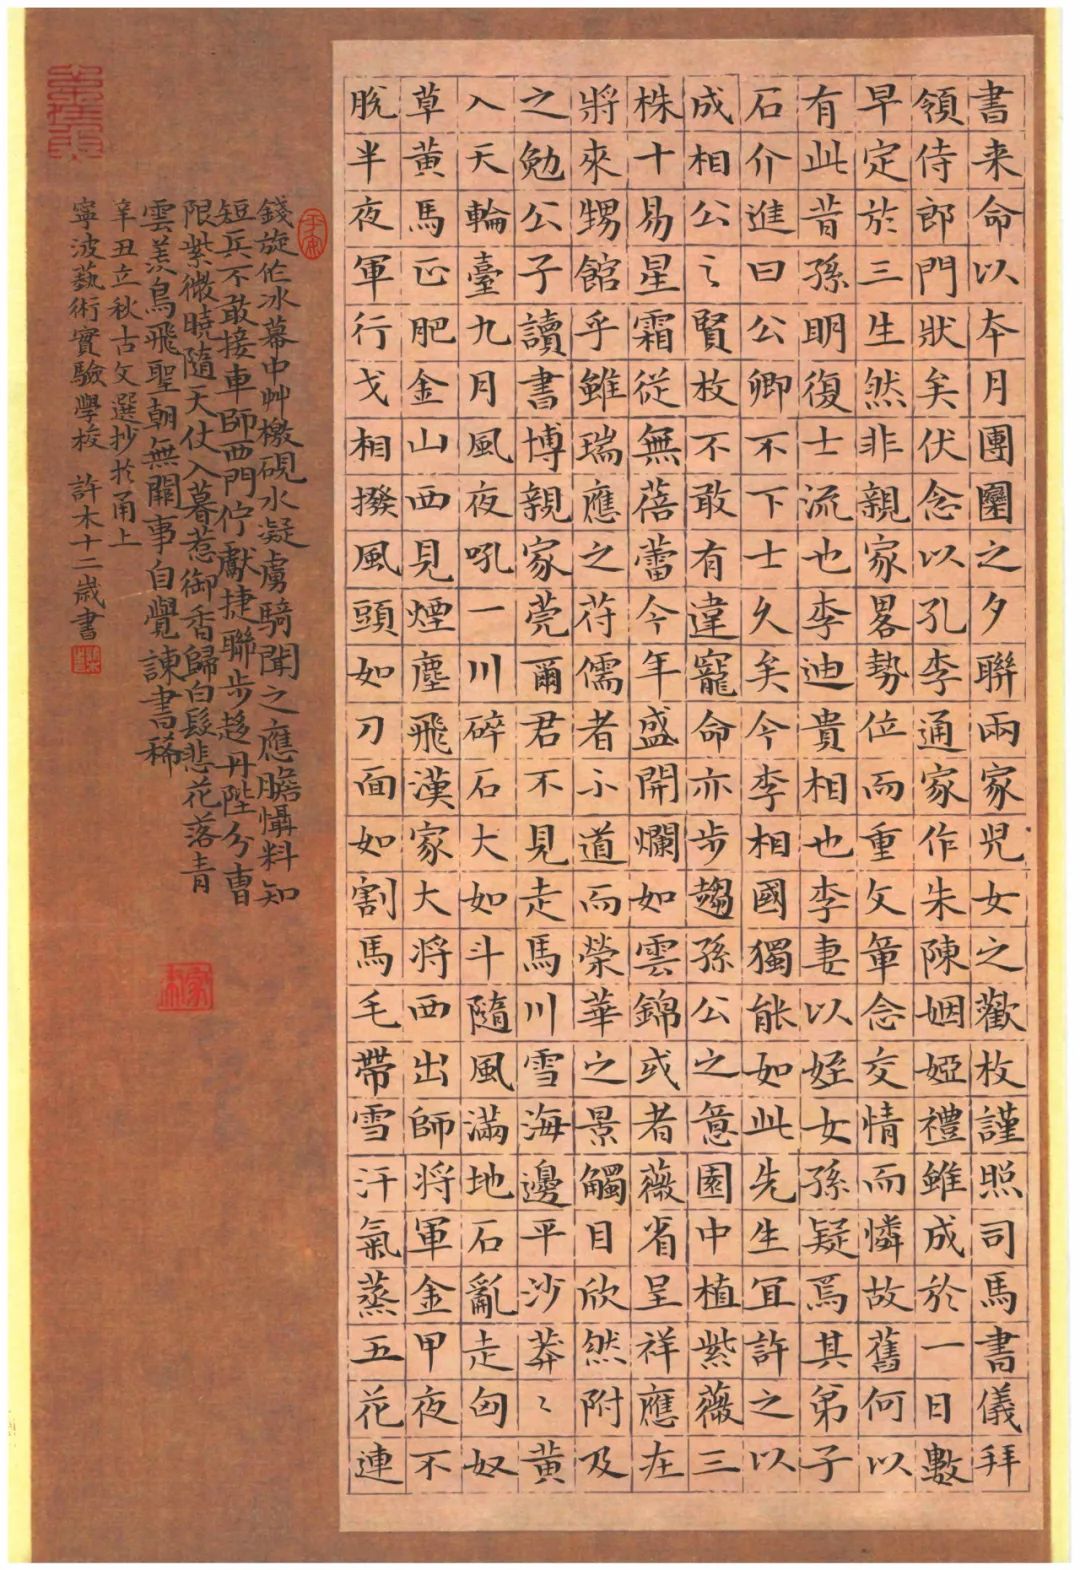 書来命以本月團圞之夕聯兩家児女之歡枚謹照司馬書儀拜
領侍郎門狀矣伏念以孔李通家作朱陳姻婭禮雖成於一日數
早定於三生然非親家畧勢位而重文章念交情而憐故舊何以
有此昔孫明復士流也李迪貴相也李妻以姪女孫疑焉其弟子
石介進曰公卿不下士久矣今李相國獨能如此先生宜許之以
成相公之賢枚不敢有違寵命亦步趨孫公之意園中植紫薇三
株十易星霜從無蓓蕾今年盛開爛如雲錦或者薇省呈祥應在
將來甥館乎雖瑞應之苻儒者不道而榮華之景觸目欣然附及
之勉公子讀書博親家莞爾君不見走馬川雪海邊平沙莽〻黃
入天輪臺九月風夜吼一川碎石大如斗隨風滿地石亂走匈奴
草黃馬正肥金山西見煙塵飛漢家大将西出師将軍金甲夜不
脫半夜軍行戈相撥風頭如刀面如割馬毛帶雪汗氣蒸五花連
錢旋作冰幕中艸檄硯水凝虜騎聞之應膽懾料知
短兵不敢接車師西門佇獻捷聯步趨丹陛分曹
限紫微曉隨天仗入暮惹御香歸白髮悲花落青
雲羨鳥飛聖朝無闕事自覺諫書稀
辛丑立秋古文選抄於甬上
寧波藝術實驗學校 許木十二歲書